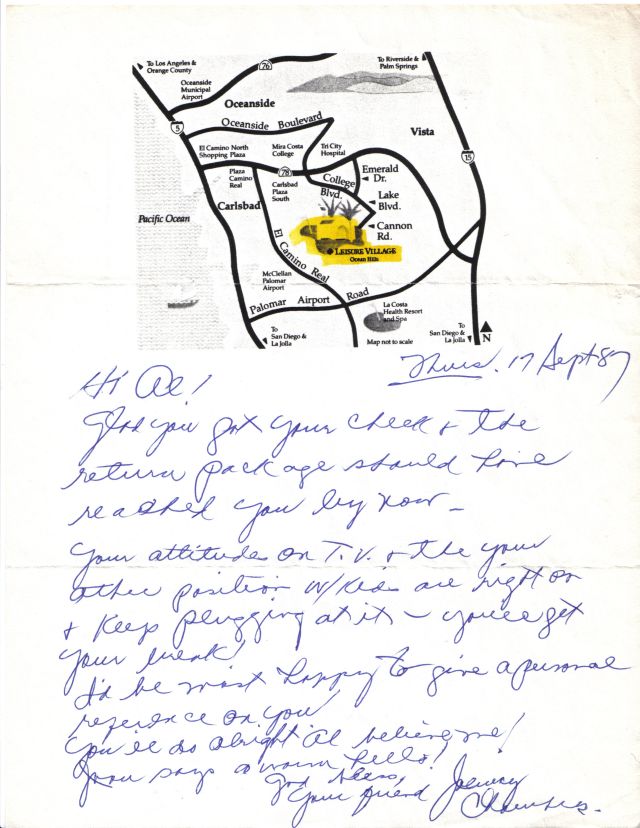 To Los Angeles &
Orange County
76
To Riverside &
Palm Springs
Oceanside
Municipal
Airport
Oceanside
5
Oceanside Boulevard
Vista
El Camino North
Shopping Plaza
Mira Costa
College
Tri City
Hospital
15
78
Plaza
Camino
Real
Carlsbad
Plaza
South
College
Blvd.
Emerald
Dr.
Lake
Blvd.
Carlsbad
Pacific Ocean
Cannon
Rd.
El Camino Real
LEISURE VILLAGE
Ocean Hills
McClellan
Palomar
Airport
Palomar Airport Road
La Costa
Health Resort
and Spa
To
San Diego &
La Jolla
Map not to scale
To
San Diego &
La Jolla
N
Thurs. 17 Sept 87
Hi Al!
Glad you got your check & the
return package should have
reached you by now –
Your attitudes on T.V. & the your
other position w/kids are right on
& keep plugging at it – you'll get
your break!
I'd be most happy to give a personal
reference on you!
You'll do alright Al believe me!
says a warm hello!
God bless,
Your friend